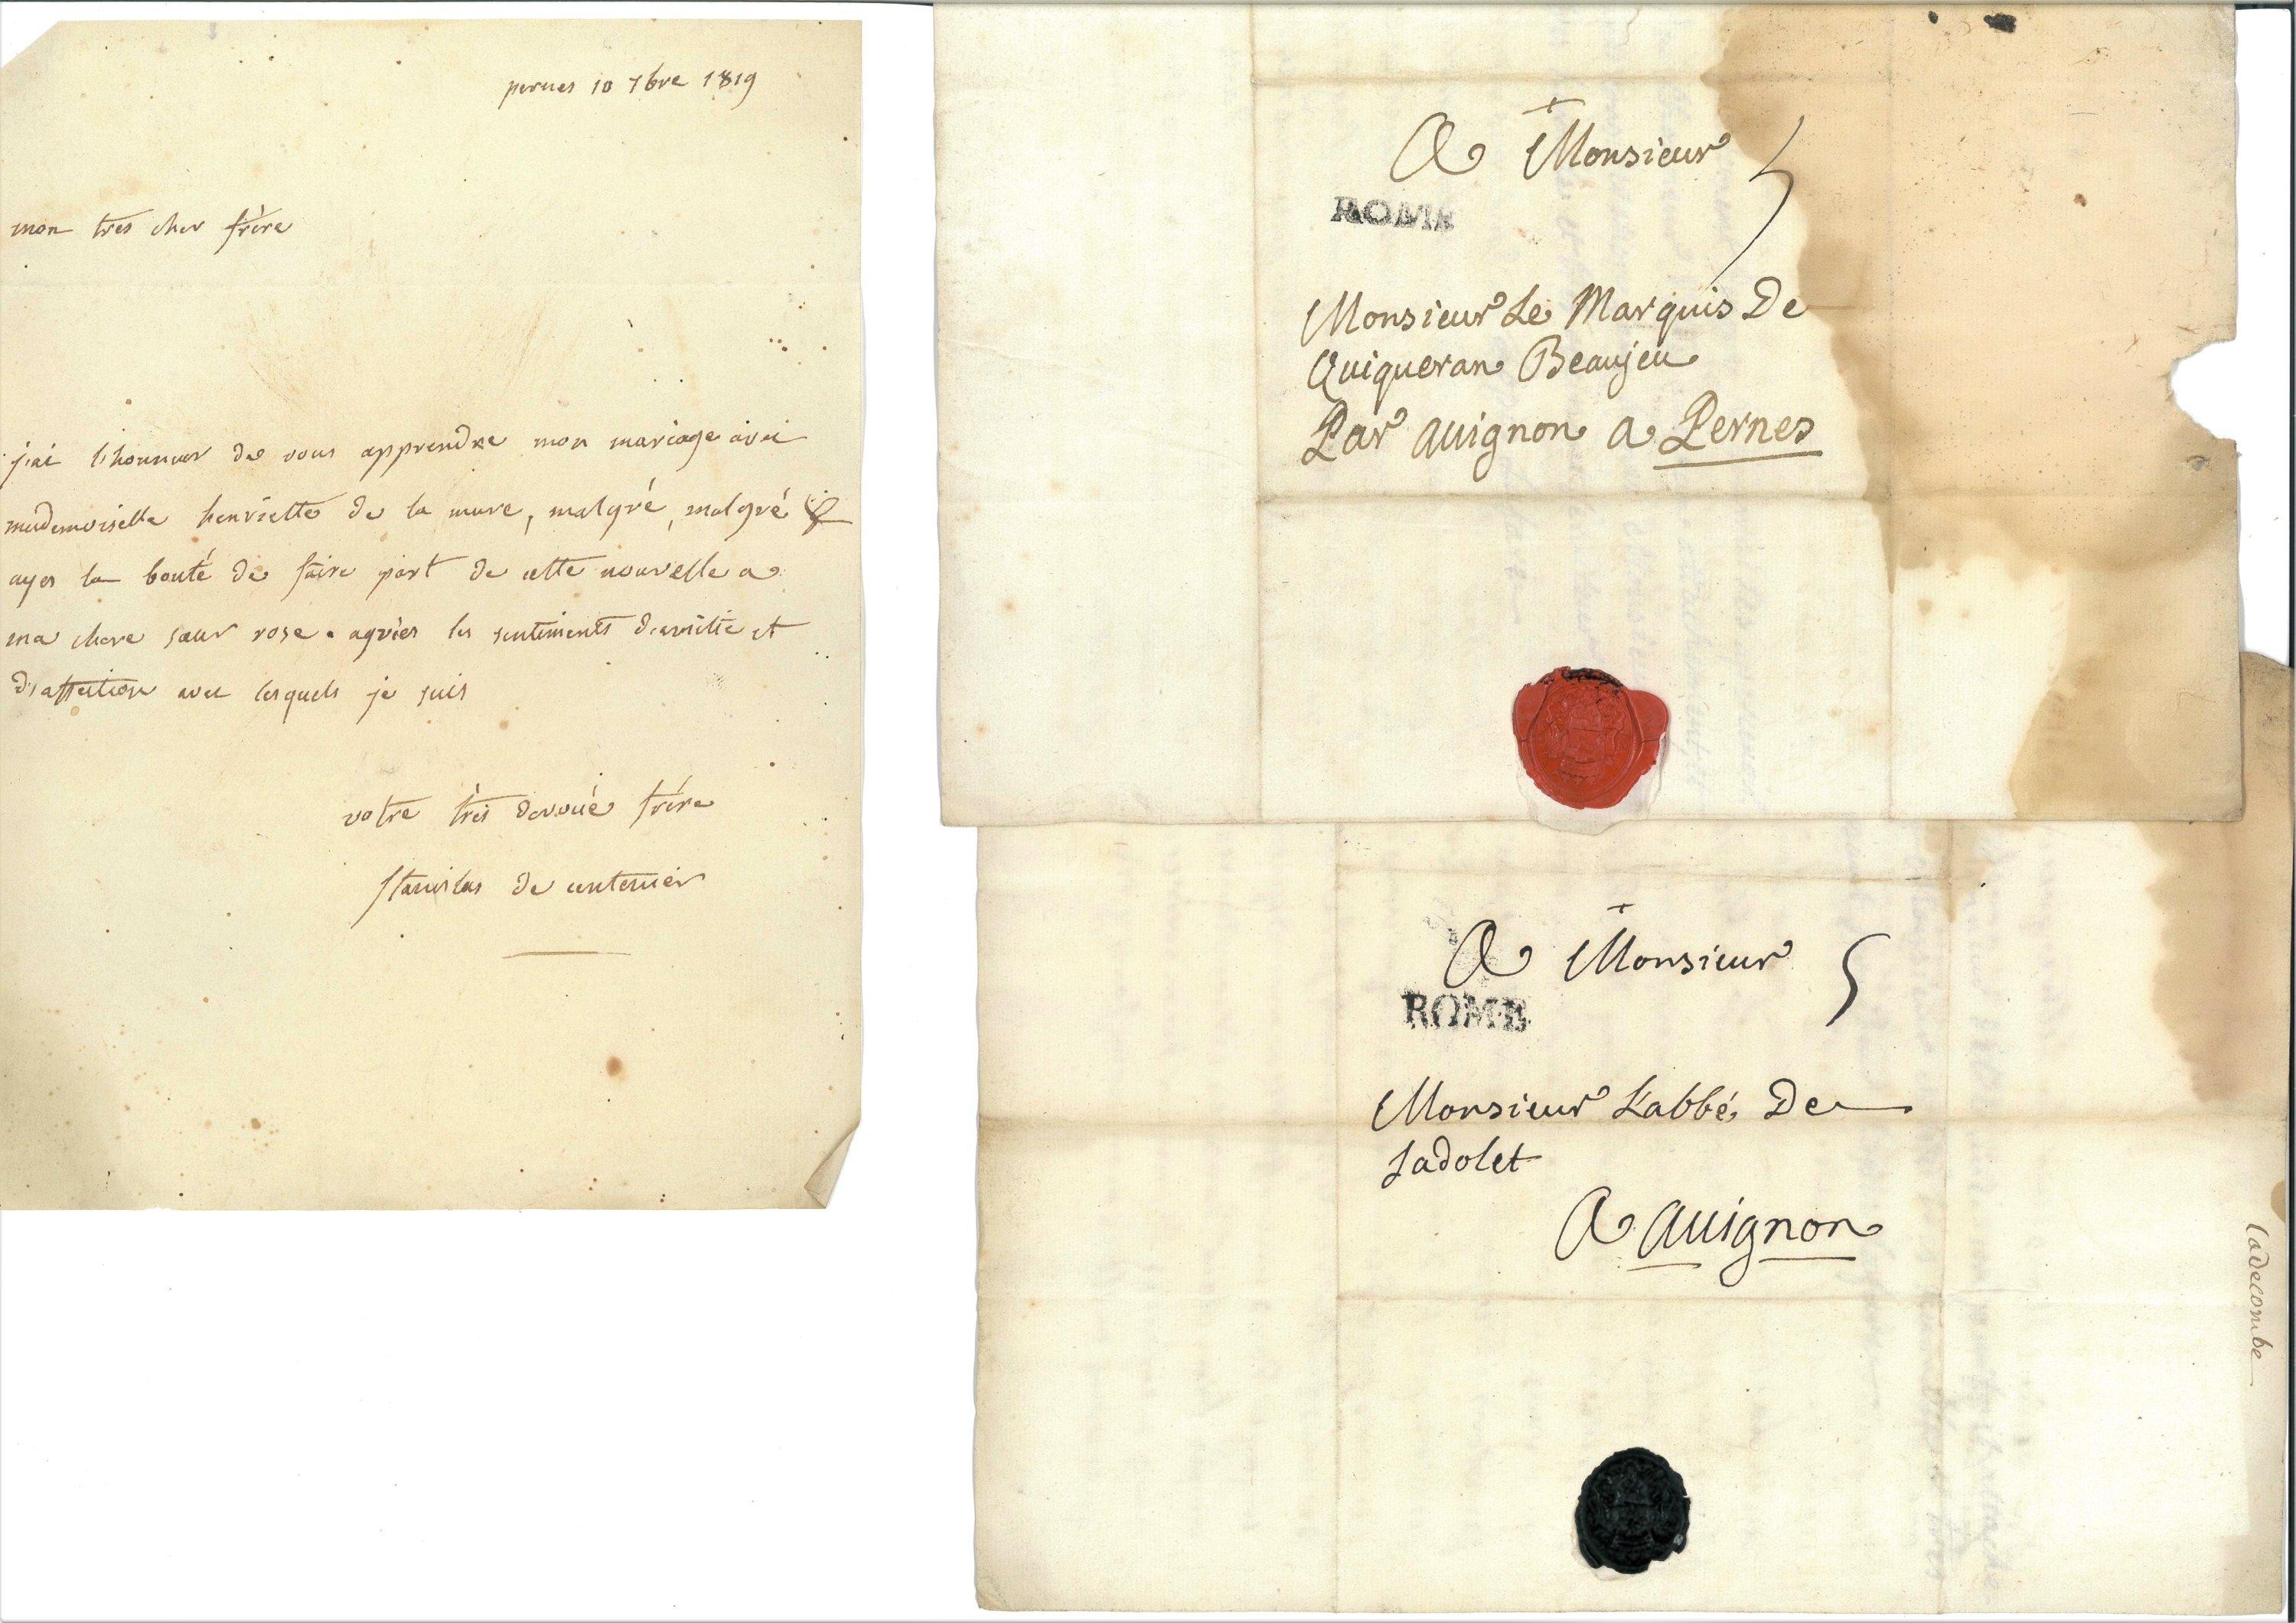 pernes 10 7bre 1819
mon tres cher frère
j'ai l'honneur de vous apprendre mon mariage avec
mademoiselle henriette de la mure, malgré, malgré &
ayes la bonté de faire part de cette nouvelle a
ma chere sœur rose. agrées les sentiments d'amitié et
d'affection avec lesquels je suis
votre très devoué frère
stanislas de centenier
A Monsieur
5
ROME
Monsieur Le Marquis De
Quiqueran Beaujeu
Par avignon a Pernes
A Monsieur
5
ROME
Monsieur L'abbé De
Sadolet
A avignon
Ladecombe